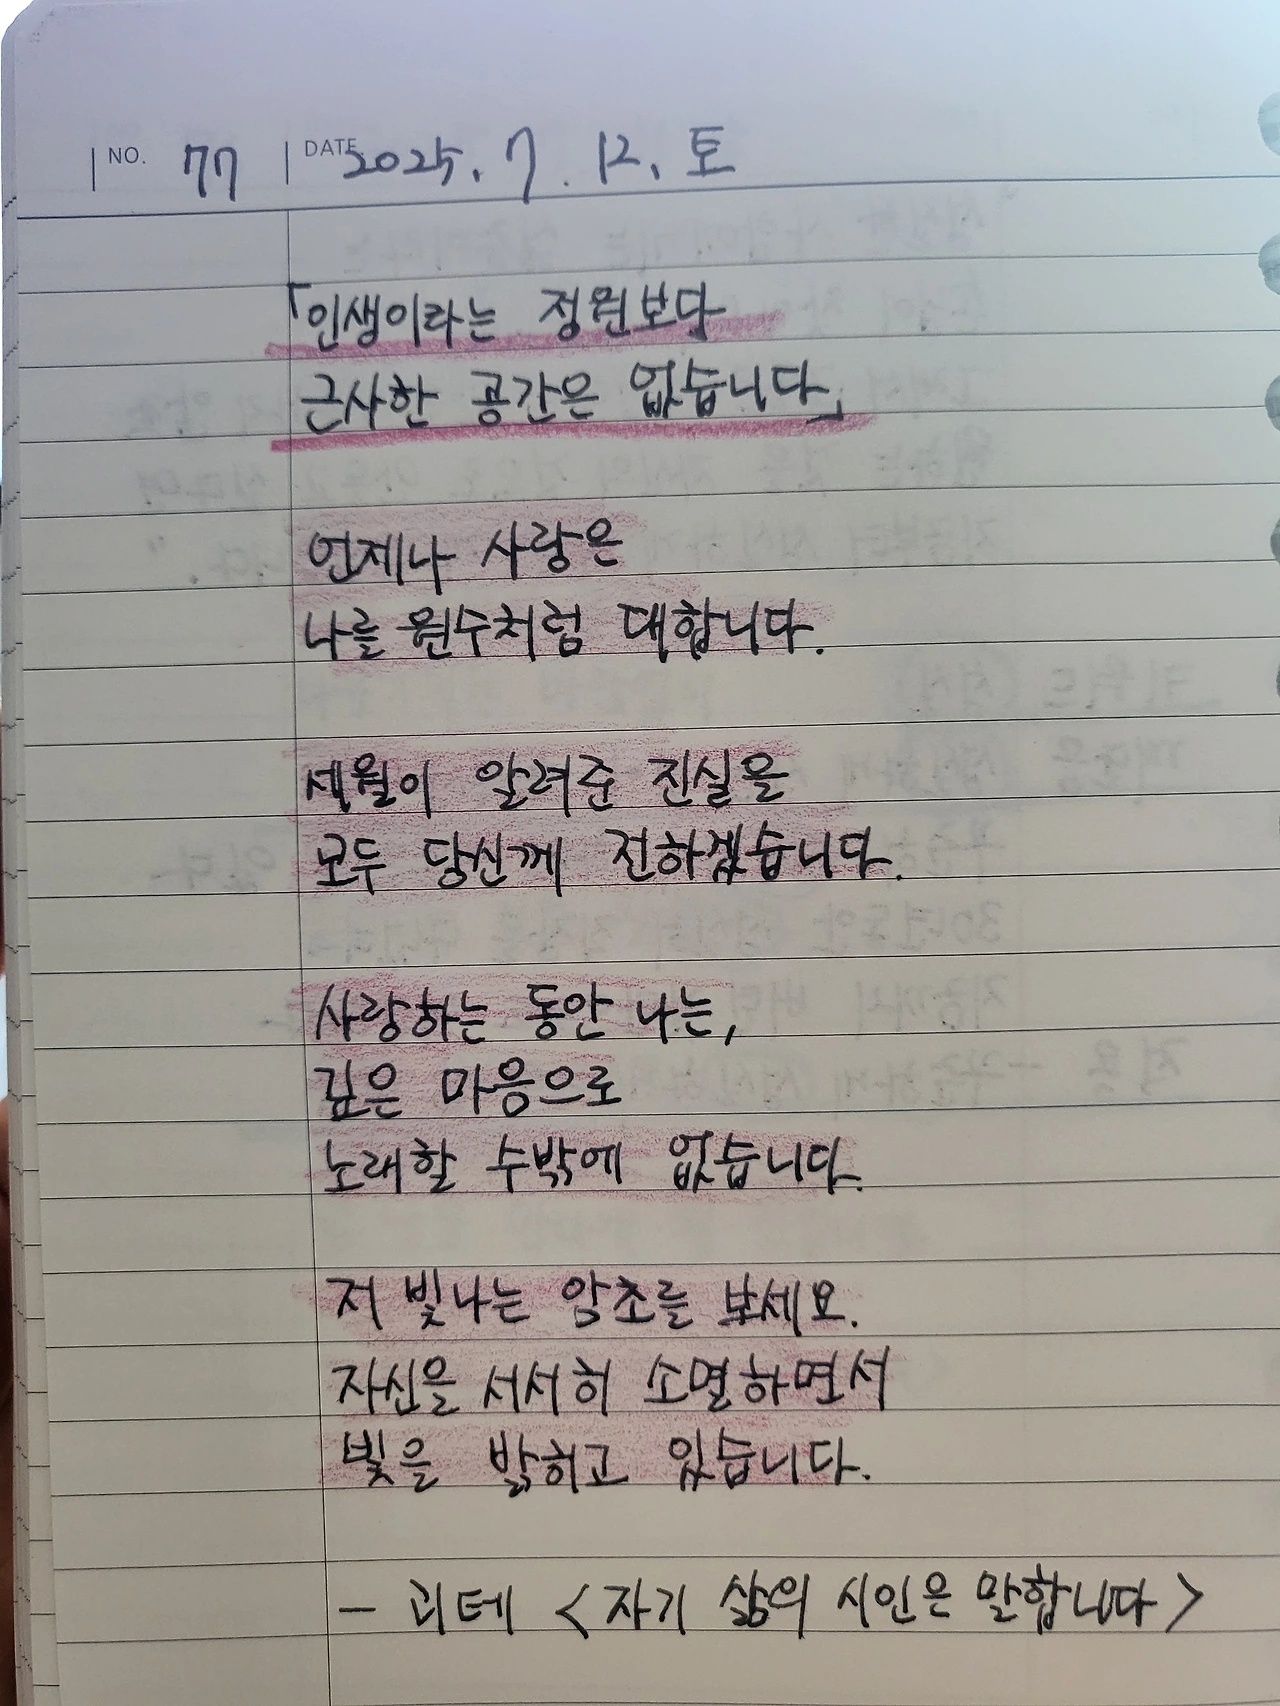 NO. 77 DATE 2025. 7. 12. 토
「인생이라는 정원보다
근사한 공간은 없습니다」
언제나 사랑은
나를 원수처럼 대합니다.
세월이 알려준 진실을
모두 당신께 전하겠습니다.
사랑하는 동안 나는,
깊은 마음으로
노래할 수밖에 없습니다.
저 빛나는 암초를 보세요.
자신을 서서히 소멸하면서
빛을 밝히고 있습니다.
- 괴테 <자기 삶의 시인은 말합니다>